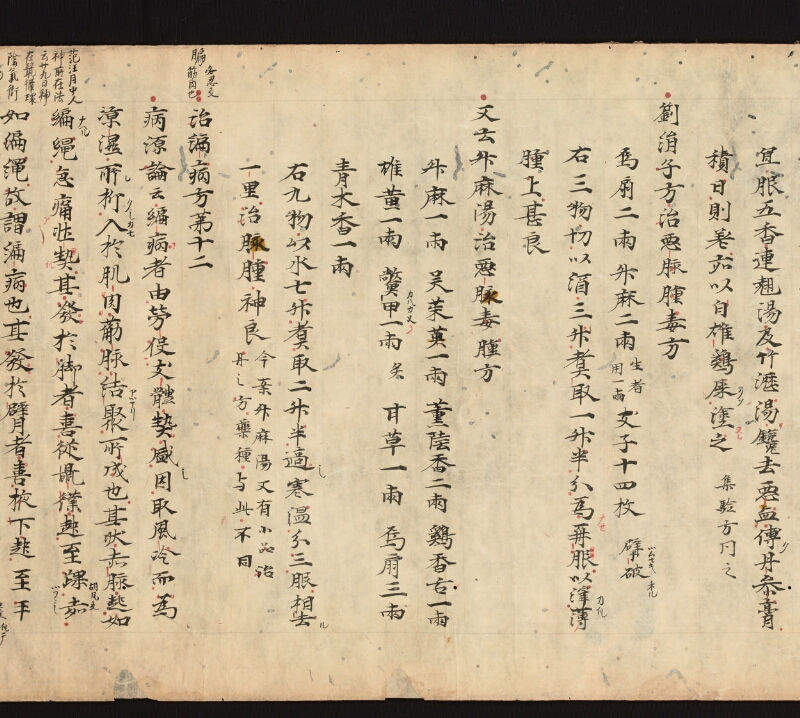 宜服五香連翹湯及竹瀝湯鑱去惡血傅丹參膏
積日則差亦以白雄鷄屎塗之 集驗方同之
劉涓子方治惡脉腫毒方
烏扇二兩 升麻二兩 生者用一兩 支子十四枚 擘破
右三物切以酒三升煮取一升半分爲再服以滓薄
腫上甚良
又云升麻湯治惡脉毒腫方
升麻一兩 吴茱萸一兩 薰陸香二兩 鷄香舌一兩
雄黄一兩 鱉甲一兩 炙 甘草一兩 烏扇三兩
青木香一兩
右九物以水七升煮取二升半適寒温分三服相去
一里治脉腫神良 今案升麻湯又有小品治
丹之方藥種与此不同
治㾫病方第十二
病源論云㾫病者由劳役支體熱盛因取風冷而爲
凉濕所折入於肌肉筋脉結聚所成也其状赤脉起如
編繩急痛壮熱其發於脚者喜從鼠䠠起至踝赤
如編繩故謂㾫病也其發於臂者喜掖下起至手